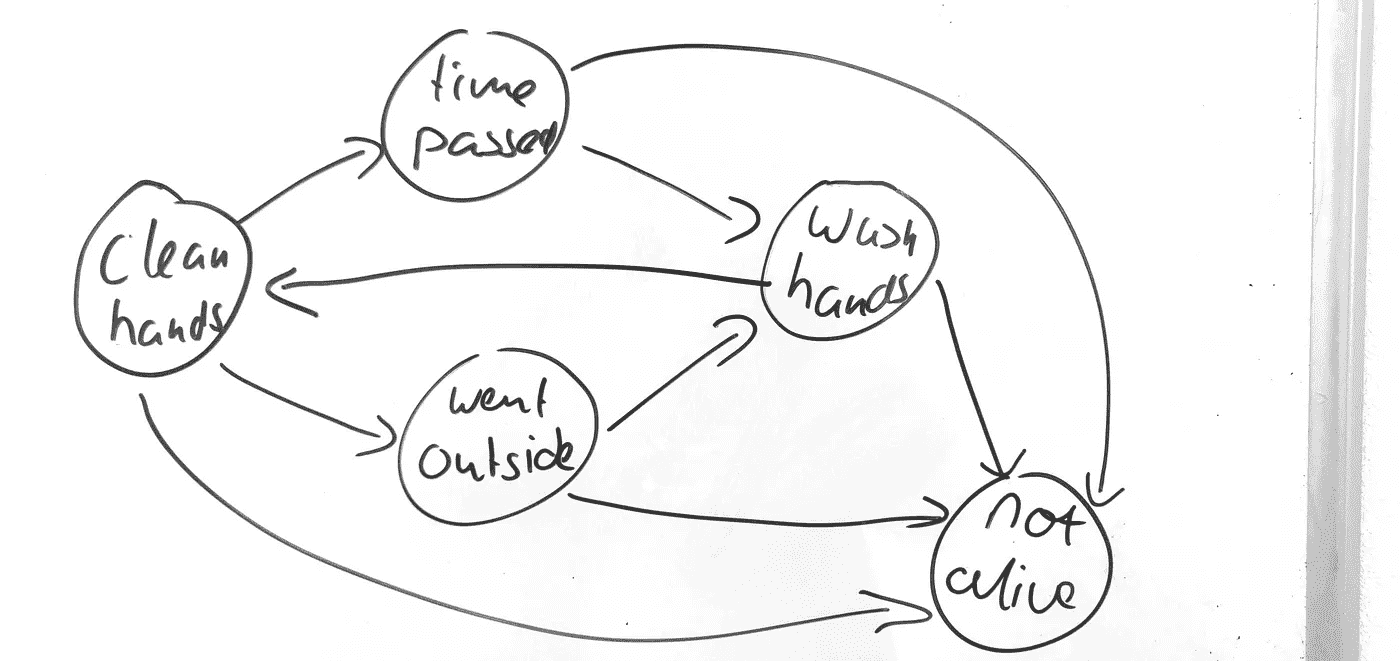 time
passed
Clean
hands
Wash
hands
went
outside
not
alive